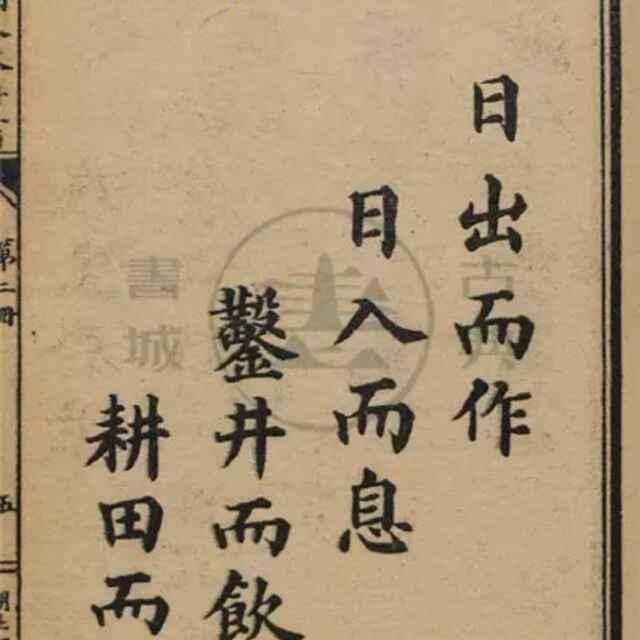 日出而作
日入而息
鑿井而飲
耕田而
第二冊
五
書城